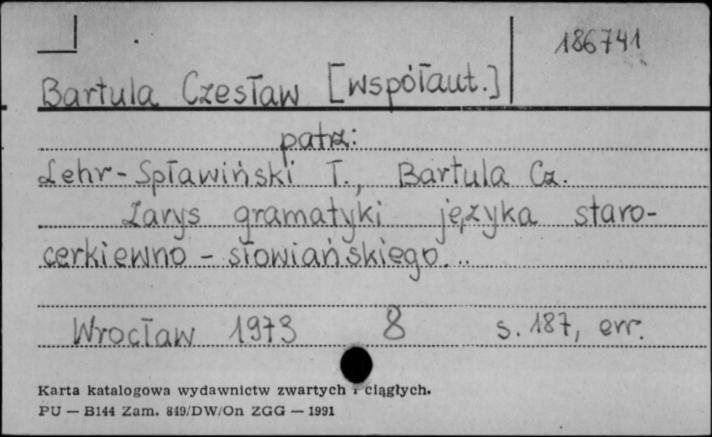 186741
Bartula Czesław [współaut.]
patrz:
Lehr-Spławiński T., Bartula Cz.
Zarys gramatyki języka staro-
cerkiewno - słowiańskiego...
Wrocław 1973 8 s. 187, err.
Karta katalogowa wydawnictw zwartych i ciągłych.
PU — B144 Zam. 849/DW/On ZGG — 1991